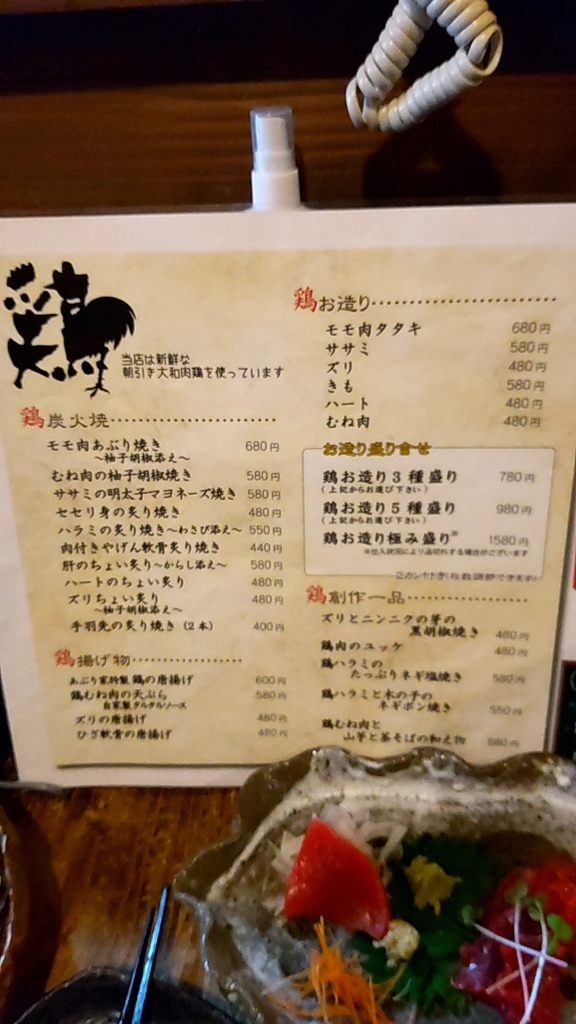 鶏
当店は新鮮な
朝引き大和肉鶏を使っています
鶏炭火焼
モモ肉あぶり焼き 680円
～柚子胡椒添え～
むね肉の柚子胡椒焼き 580円
ササミの明太子マヨネーズ焼き 580円
セセリ身の炙り焼き 480円
ハラミの炙り焼き～わさび添え～ 550円
肉付きやげん軟骨炙り焼き 440円
肝のちょい炙り～からし添え～ 580円
ハートのちょい炙り 480円
ズリちょい炙り 480円
～柚子胡椒添え～
手羽先の炙り焼き（2本） 400円
鶏揚げ物
あぶり家特製 鶏の唐揚げ 600円
鶏むね肉の天ぷら 580円
自家製タルタルソース
ズリの唐揚げ 480円
ひざ軟骨の唐揚げ 480円
鶏お造り
モモ肉タタキ 680円
ササミ 580円
ズリ 480円
きも 580円
ハート 480円
むね肉 480円
お造り盛り合せ
鶏お造り3種盛り 780円
（上記からお選び下さい）
鶏お造り5種盛り 980円
（上記からお選び下さい）
鶏お造り極み盛り※ 1580円
※仕入状況により品切れする場合がございます
鶏創作一品
ズリとニンニクの芽の
黒胡椒焼き 480円
鶏肉のユッケ 480円
鶏ハラミの
たっぷりネギ塩焼き 580円
鶏ハラミと木の子の
ネギポン焼き 550円
鶏むね肉と
山芋と茶そばの和え物 680円